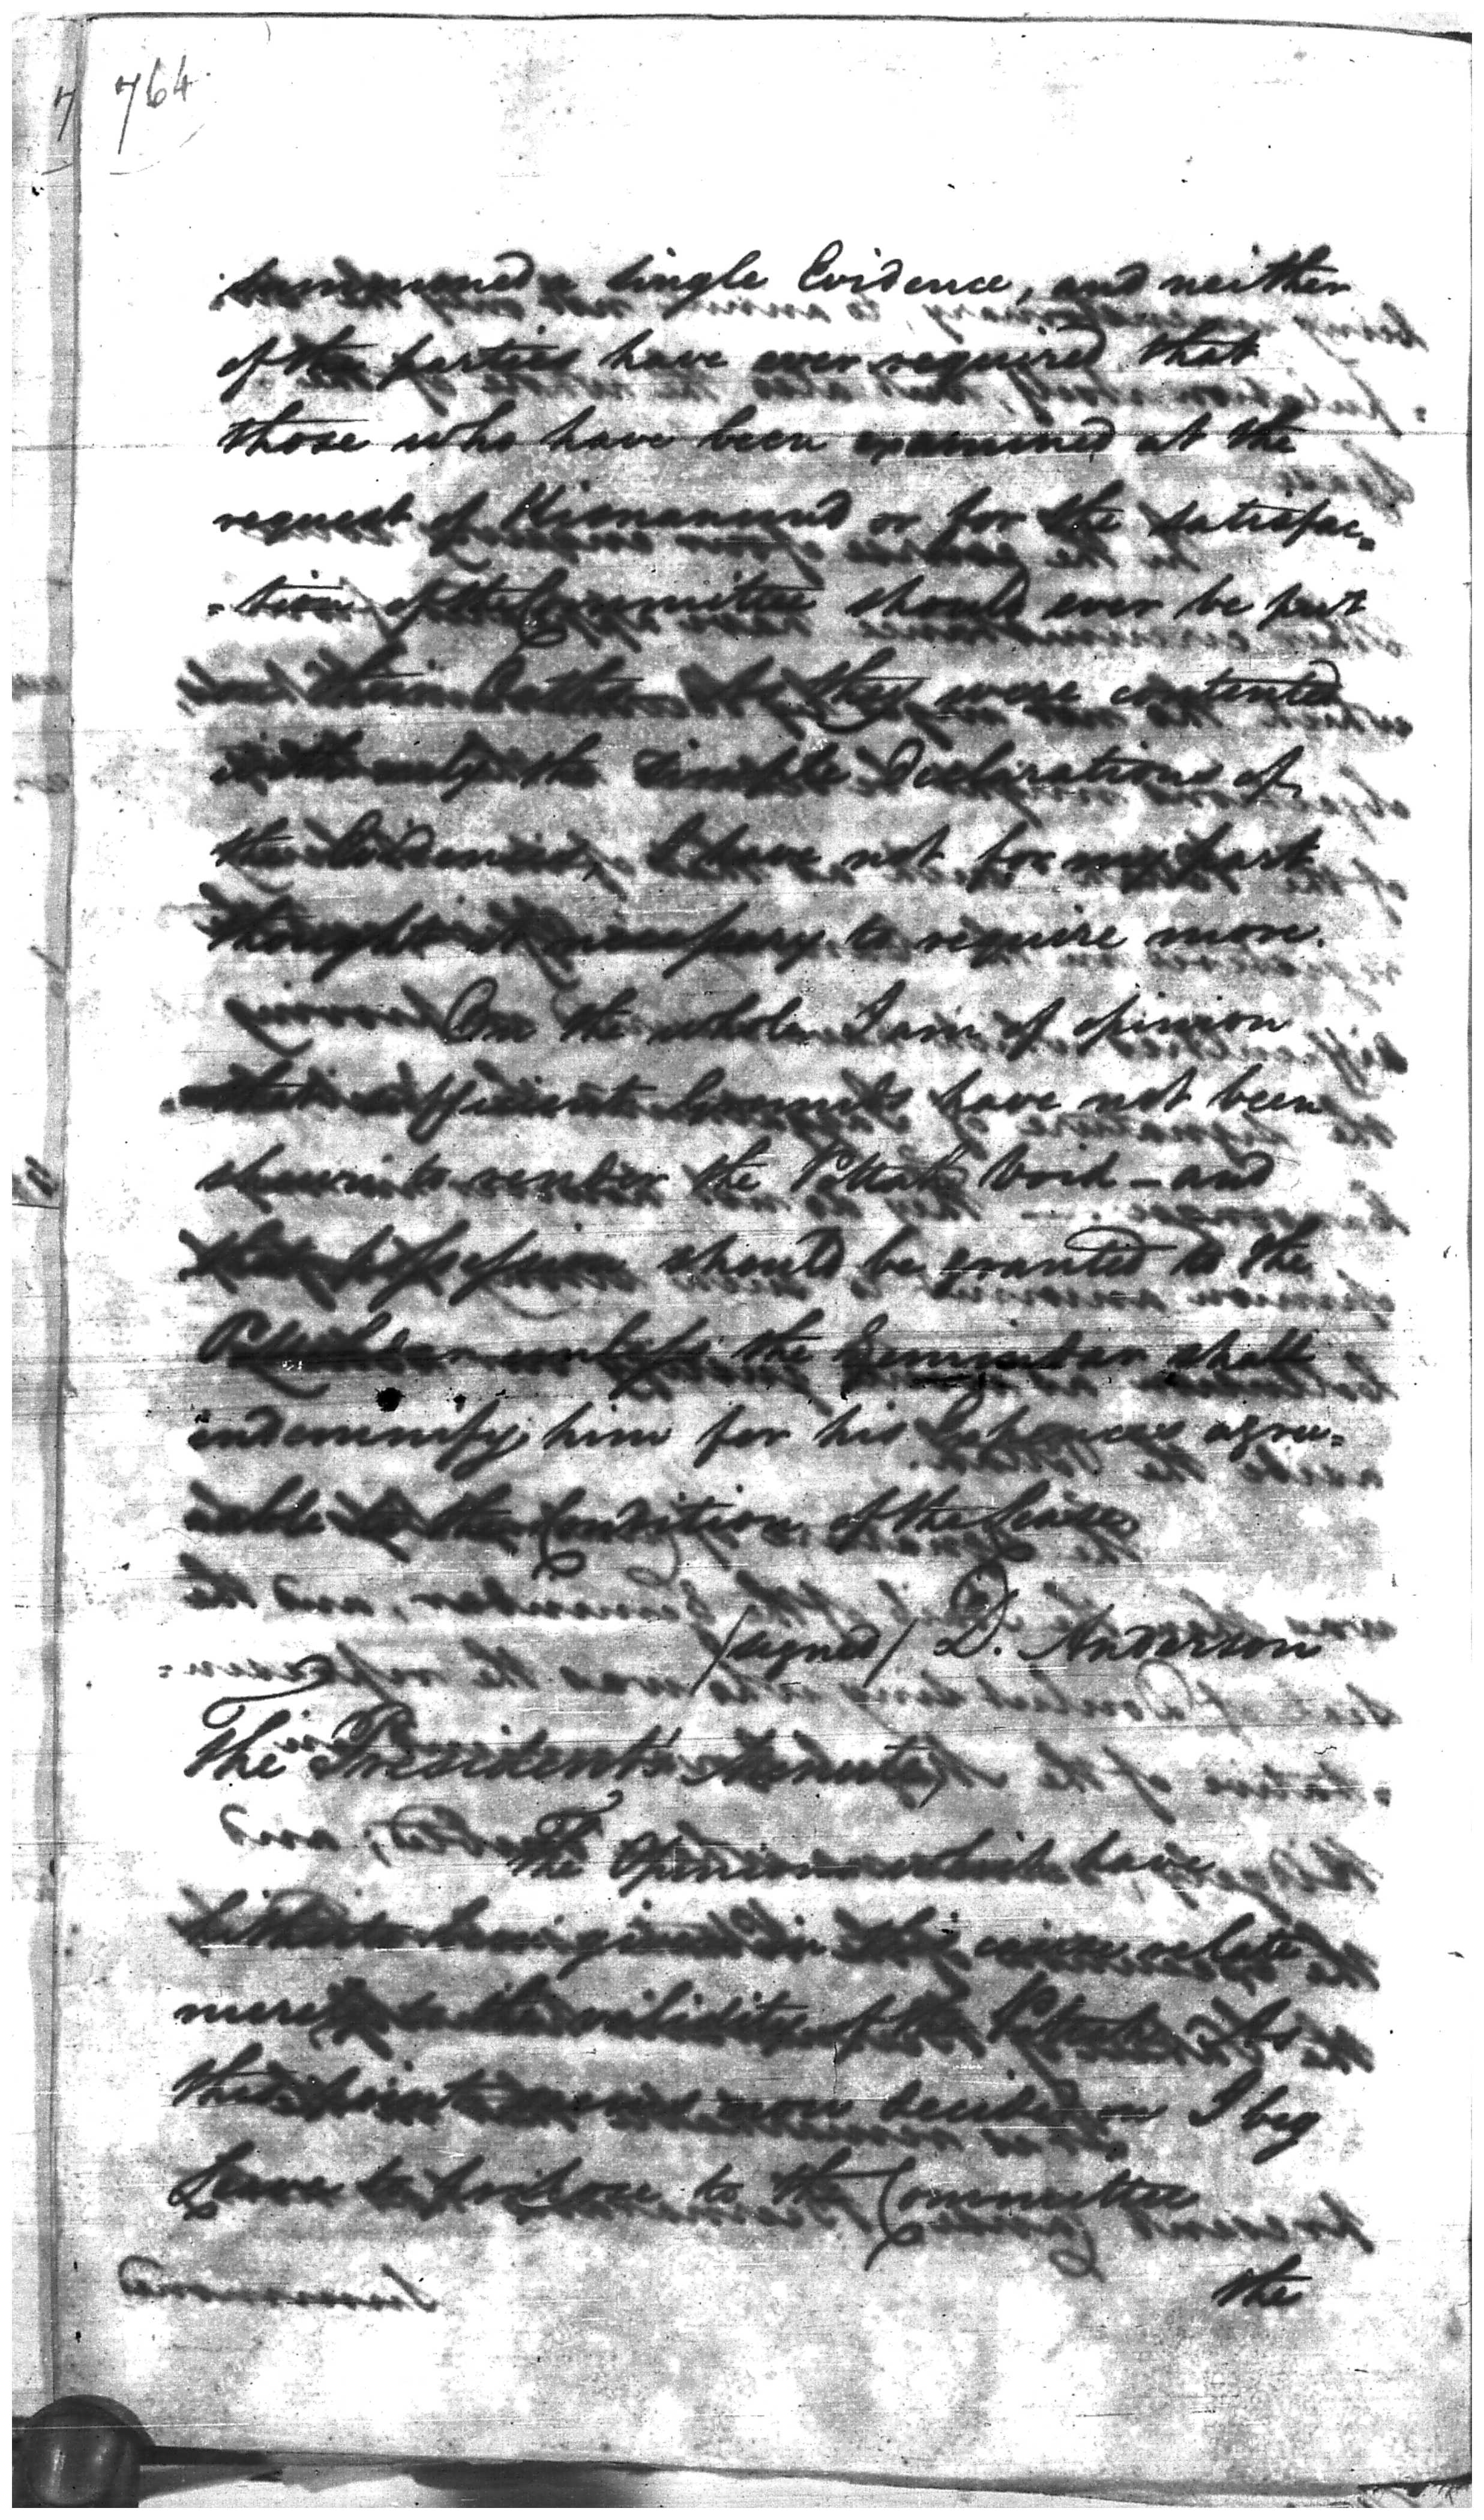 764
summoned a single Evidence, and neither
of the parties have ever required that
those who have been examined at the
request of Kisnanund or for the satisfac=
=tion of the Committee should ever be put
on their Oaths As they were contented
with only the simple Declarations of
the Evidences, I have not for my part
thought it necessary to require more.
On the whole I am of opinion
that sufficient Grounds have not been
shewn to render the Pottah Void – and
that possession should be granted to the
unless the Zemindar shall
indemnify him for his Expences agree=
=able to the Condition of the Lease
(signed) D. Anderson
The President's Minute
The Opinions which have
hitherto been given in this cause relate
merely to the validity of the Pottah. As
that point is now decided on I beg
Leave to propose to the Committee
the